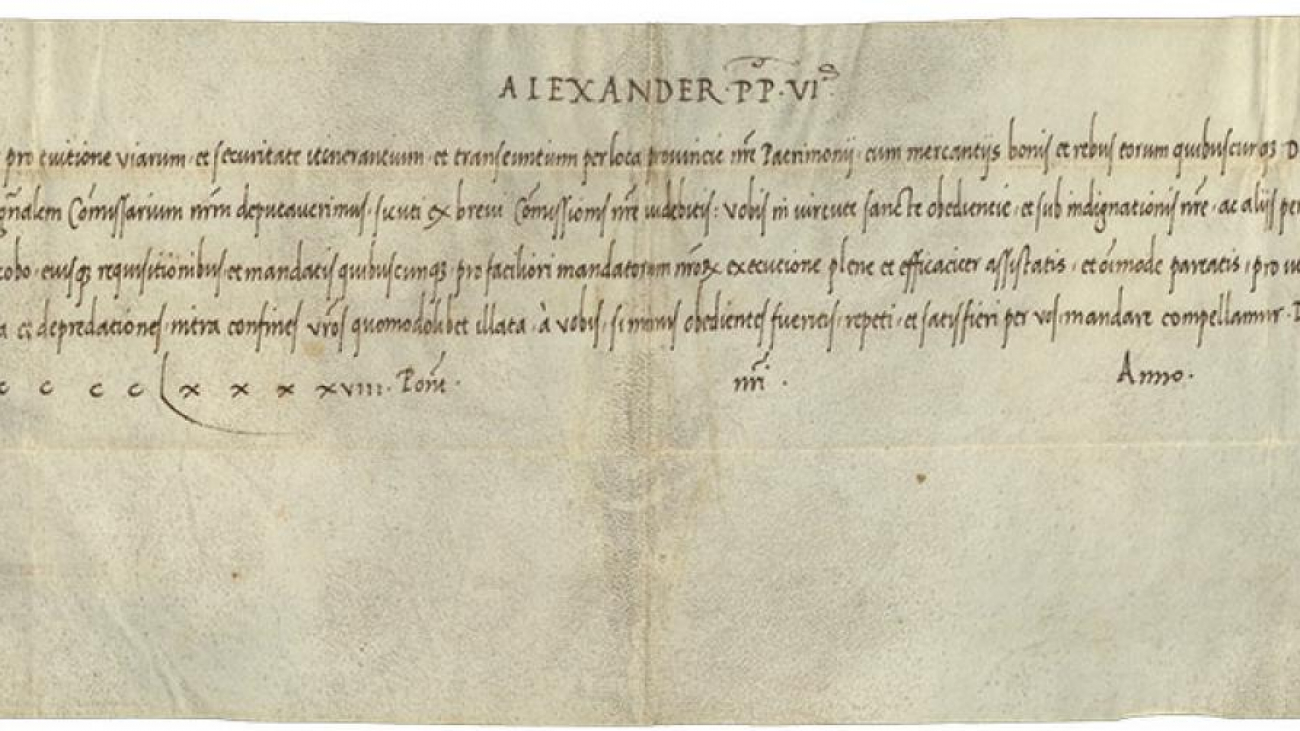 ALEXANDER·P̄P̄·VIˢ
pro tuitione viarum et securitate itinerantium et transeuntium per loca provincie nr̄e Patrimonij cum mercantijs bonis et rebus eorum quibuscunqȝ
gn̄alem Cōmissarium nr̄m deputaverimus sicuti ex brevi Cōmissionis nr̄e videbitis: vobis in virtute sancte obedientie et sub indignationis nr̄e ac alijs
cobo eiusqȝ requisitionibus et mandatis quibuscunqȝ pro faciliori mandatorum nr̄oꝝ executione plene et efficaciter assistatis et oīmode pareatis pro
a et depredationes intra confines vr̄os quomodolibet illata à vobis si minus obedientes fueritis repeti et satisfieri per vos mandare compellamur
c c c c L x x x xviii. Pont̄ . nr̄i . Anno.